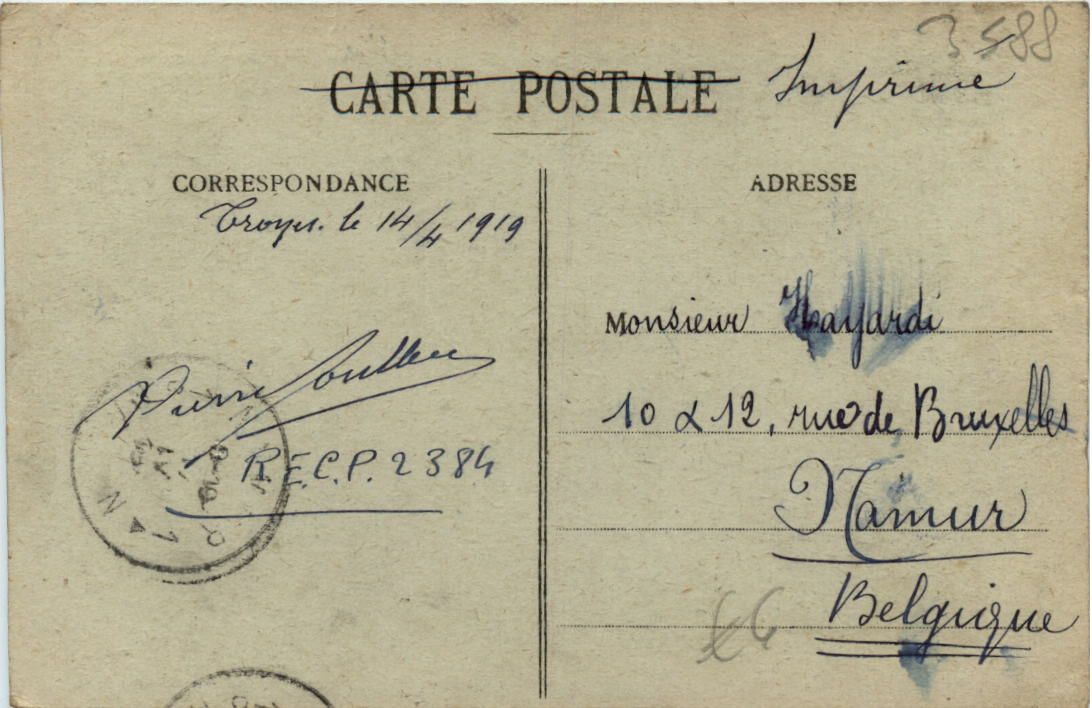 3588
CARTE POSTALE Imprimé
CORRESPONDANCE
Troyes. le 14/4 1919
Pierre
R.E.C.P. 2384
ADRESSE
Monsieur Hayardi
10 & 12, rue de Bruxelles
Namur
Belgique